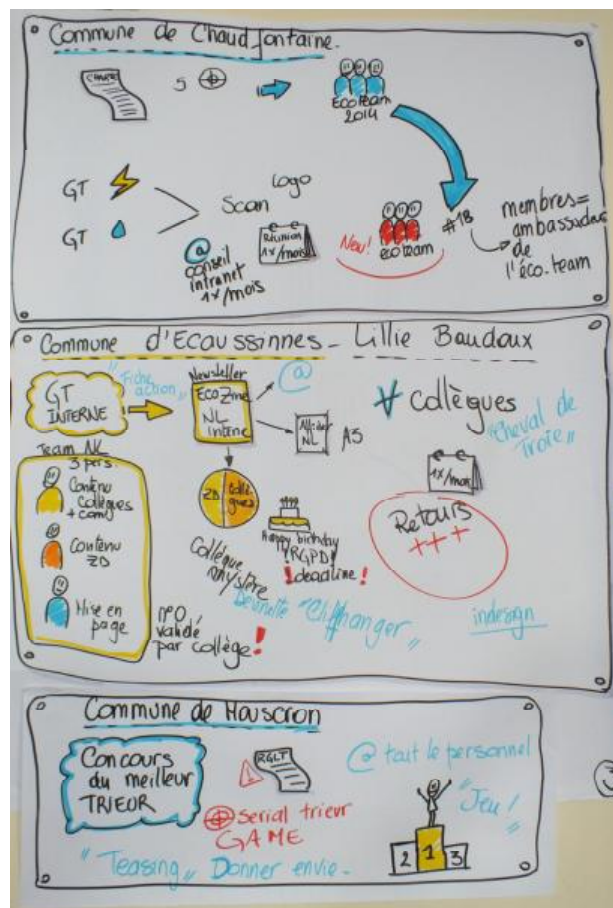 Commune de Chaudfontaine
CHARTE
5
EcoTeam
2014
GT
GT
Scan
Logo
@
conseil
intranet
1x/mois
Réunion
1x/mois
New!
ecoteam
#18
membres=
ambassadeurs
de
l'éco.team
Commune d'Ecaussinnes - Lillie Baudoux
GT
INTERNE
"Fiche
action"
Newsletter
ECOZine
NL
interne
@
NL
A3
∀ collègues
"Cheval de
Troie"
1x/mois
Retours
+++
Team NL
3 pers.
Contenu
Collègues
+ com
Contenu
ZD
Mise en
page
ZD
Collègues
Collègue
mystère
Happy birthday
!RGPD!
! deadline !
Devinette "Cliffhanger"
indesign
n°0
validé
par collège !
Commune de Mouscron
Concours
du meilleur
TRIEUR
RGLT
serial trieur
GAME
@ tout le personnel
"Jeu!"
2 1 3
"Teasing" Donner envie-